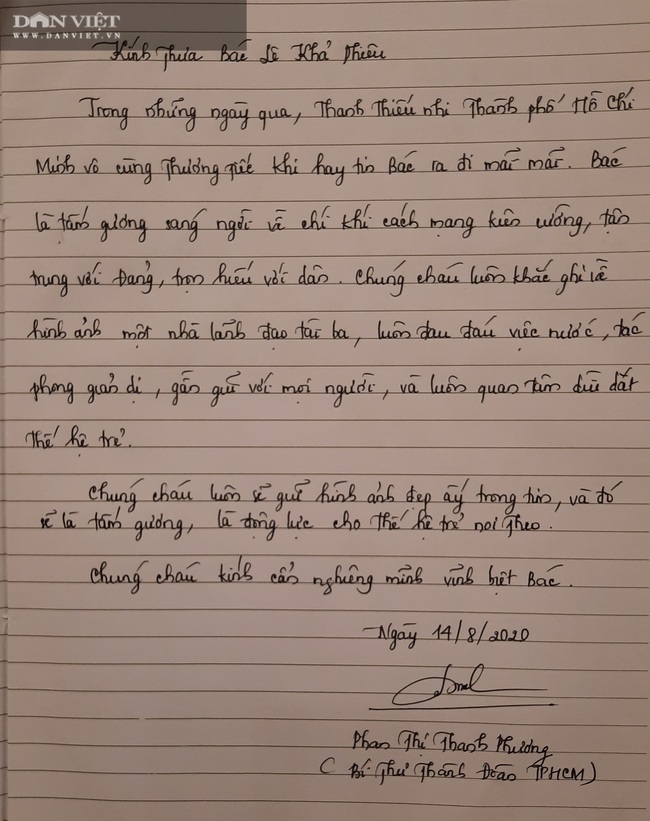 DÂN VIỆT
WWW.DANVIET.VN
Kính thưa Bác Lê Khả Phiêu
Trong những ngày qua, Thanh Thiếu nhi Thành phố Hồ Chí
Minh vô cùng thương tiếc khi hay tin Bác ra đi mãi mãi. Bác
là tấm gương sáng ngời về chí khí cách mạng kiên cường, tận
trung với Đảng, trọn hiếu với dân. Chúng cháu luôn khắc ghi về
hình ảnh một nhà lãnh đạo tài ba, luôn đau đáu việc nước, tác
phong giản dị, gần gũi với mọi người, và luôn quan tâm dìu dắt
thế hệ trẻ.
Chúng cháu luôn sẽ giữ hình ảnh đẹp ấy trong tim, và đó
sẽ là tấm gương, là động lực cho thế hệ trẻ noi theo.
Chúng cháu kính cẩn nghiêng mình vĩnh biệt Bác.
Ngày 14/8/2020
Phan Thị Thanh Phương
( Bí Thư Thành Đoàn TPHCM)